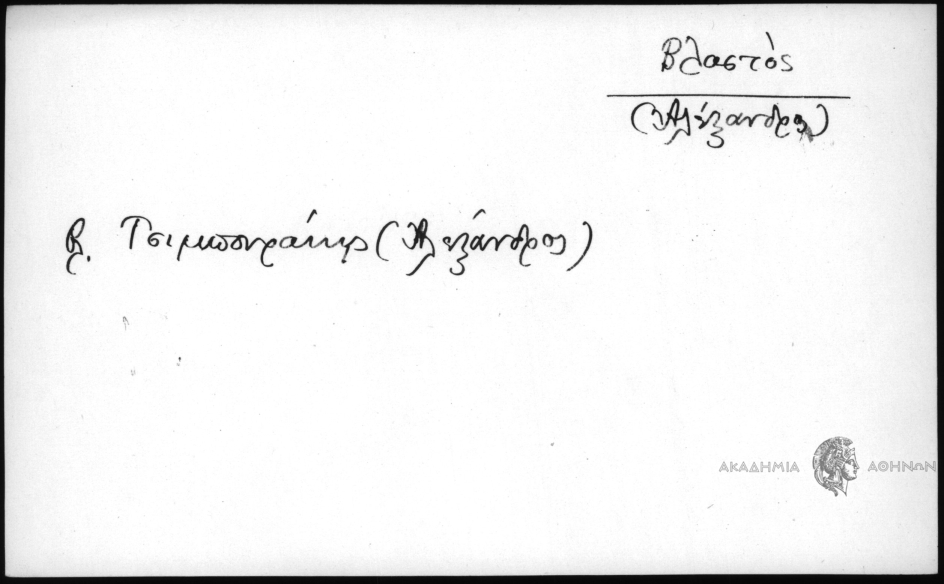 Βλαστὸς
(Ἀλέξανδρος)
Β. Τσιμπουράκης (Ἀλεξάνδρος)
ΑΚΑΔΗΜΙΑ ΑΘΗΝΩΝ